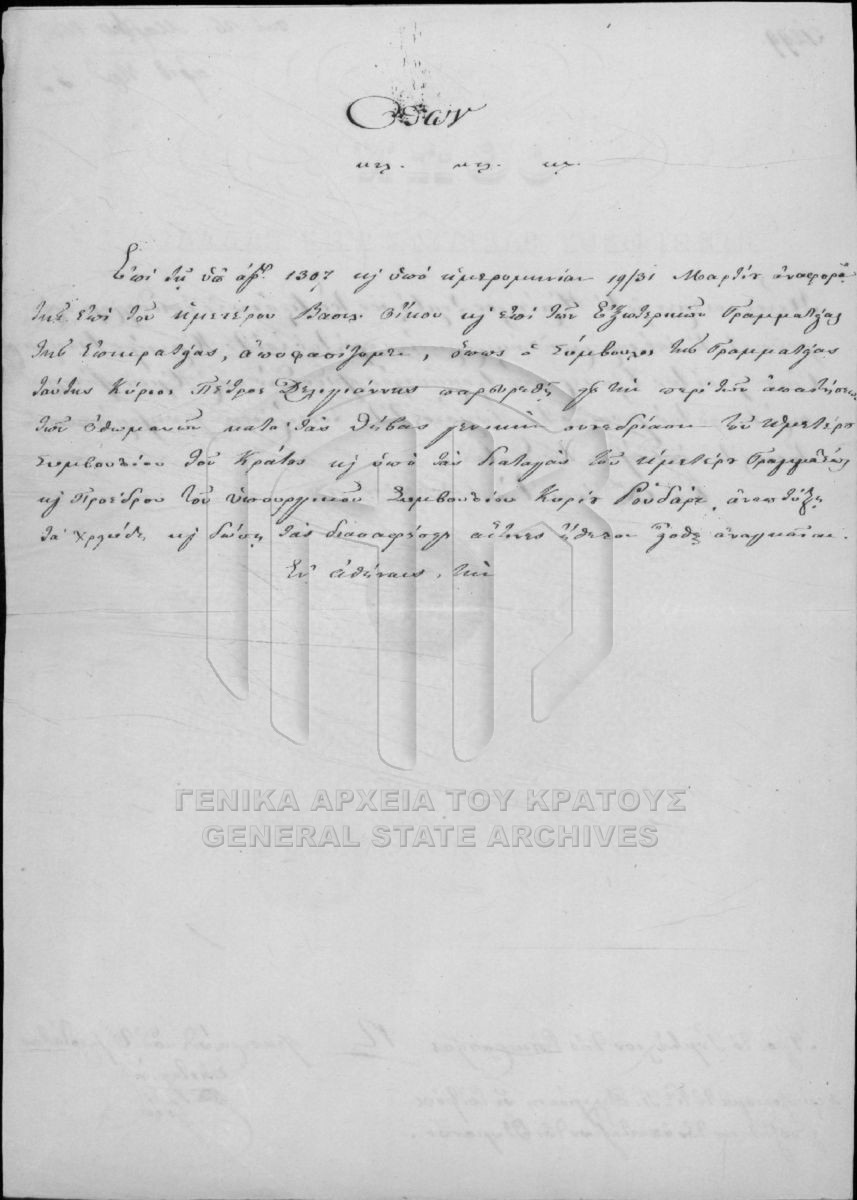 Όθων
κτλ. κτλ. κτλ.
Επί τη υπ' αρ. 1307 κ̣ υπό ημερομηνίαν 19/31 Μαρτίου αναφορά
της επί του ημετέρου Βασιλ. Οίκου κ̣ επί των Εξωτερικών Γραμματείας
της Επικρατείας, αποφασίζομεν, όπως ο Σύμβουλος της Γραμματείας
ταύτης Κύριος Πέτρος Δεληγιάννης παρευρεθή εις την περί των απαιτήσεων
των Οθωμανών κατά τας Θήβας γενικήν συνεδρίασιν του ημετέρου
Συμβουλίου του Κράτους κ̣ υπό τας διαταγάς του ημετέρου Γραμματέως
κ̣ Προέδρου του υπουργικού Συμβουλίου Κυρίου Ρουδάρτ, αναπτύξη
τα χρειώδη κ̣ δώση τας διασαφήσεις αίτινες ήθελον είσθαι αναγκαίαι.
Εν Αθήναις, την
ΓΕΝΙΚΑ ΑΡΧΕΙΑ ΤΟΥ ΚΡΑΤΟΥΣ
GENERAL STATE ARCHIVES